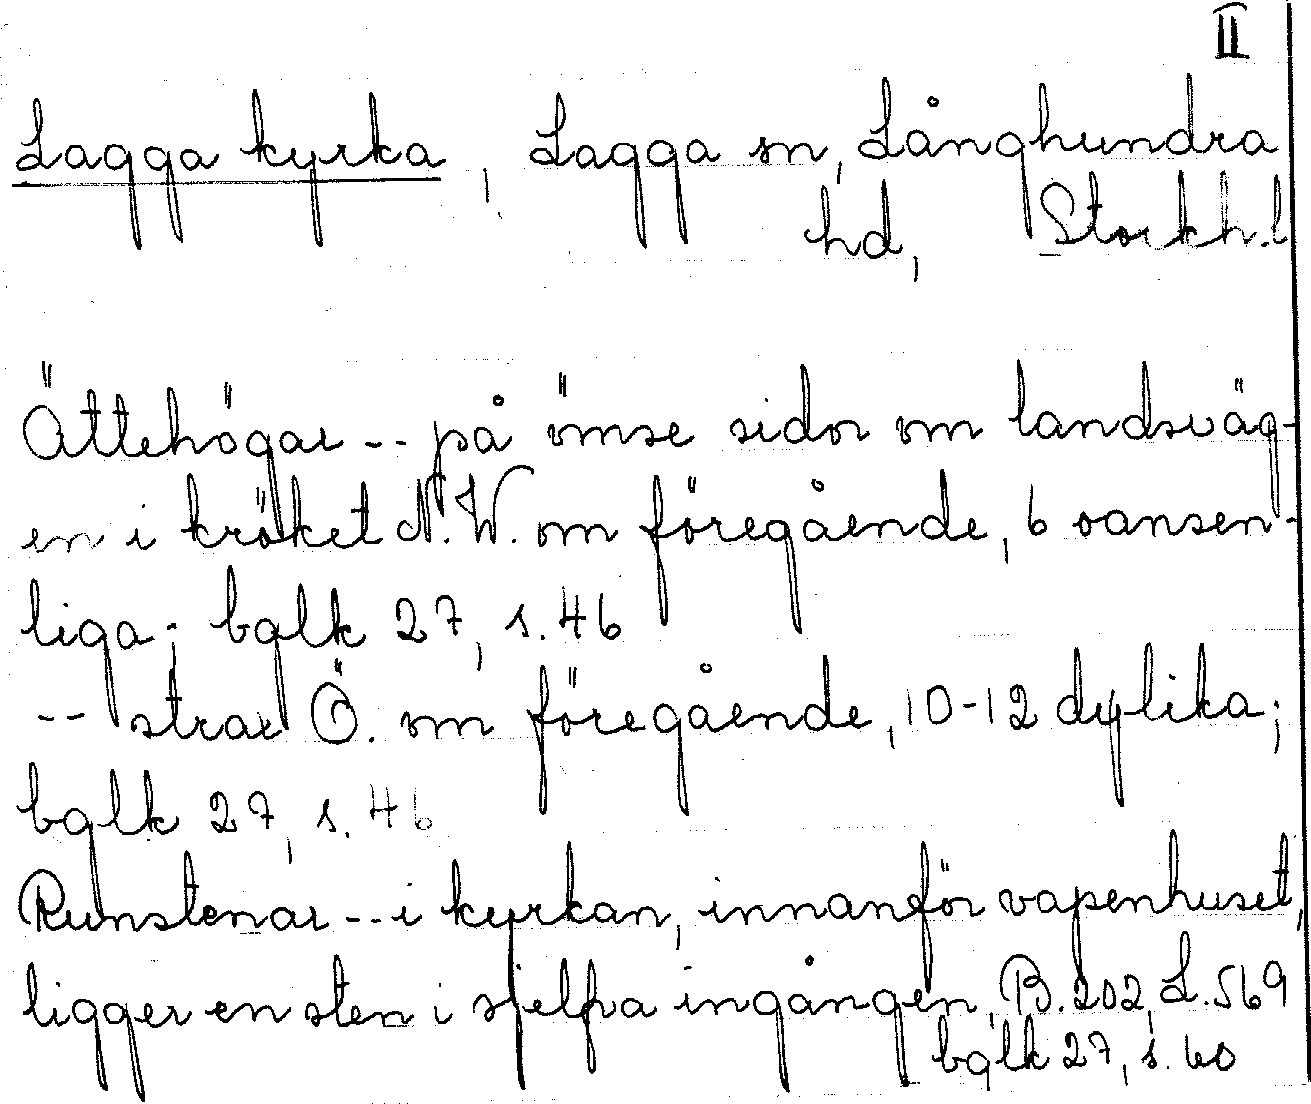 II
Lagga kyrka, Lagga sn, Långhundra
hd, Stockh.l
Ättehögar -- på ömse sidor om landsväg-
en i kröket N.W. om föregående, 6 oansen-
liga; bglk 27, s. 46
-- strax Ö. om föregående, 10-12 dylika;
bglk 27, s. 46
Runstenar -- i kyrkan, innanför vapenhuset,
ligger en sten i sjelfva ingången, B. 202, L. 569
bglk 27, s. 60